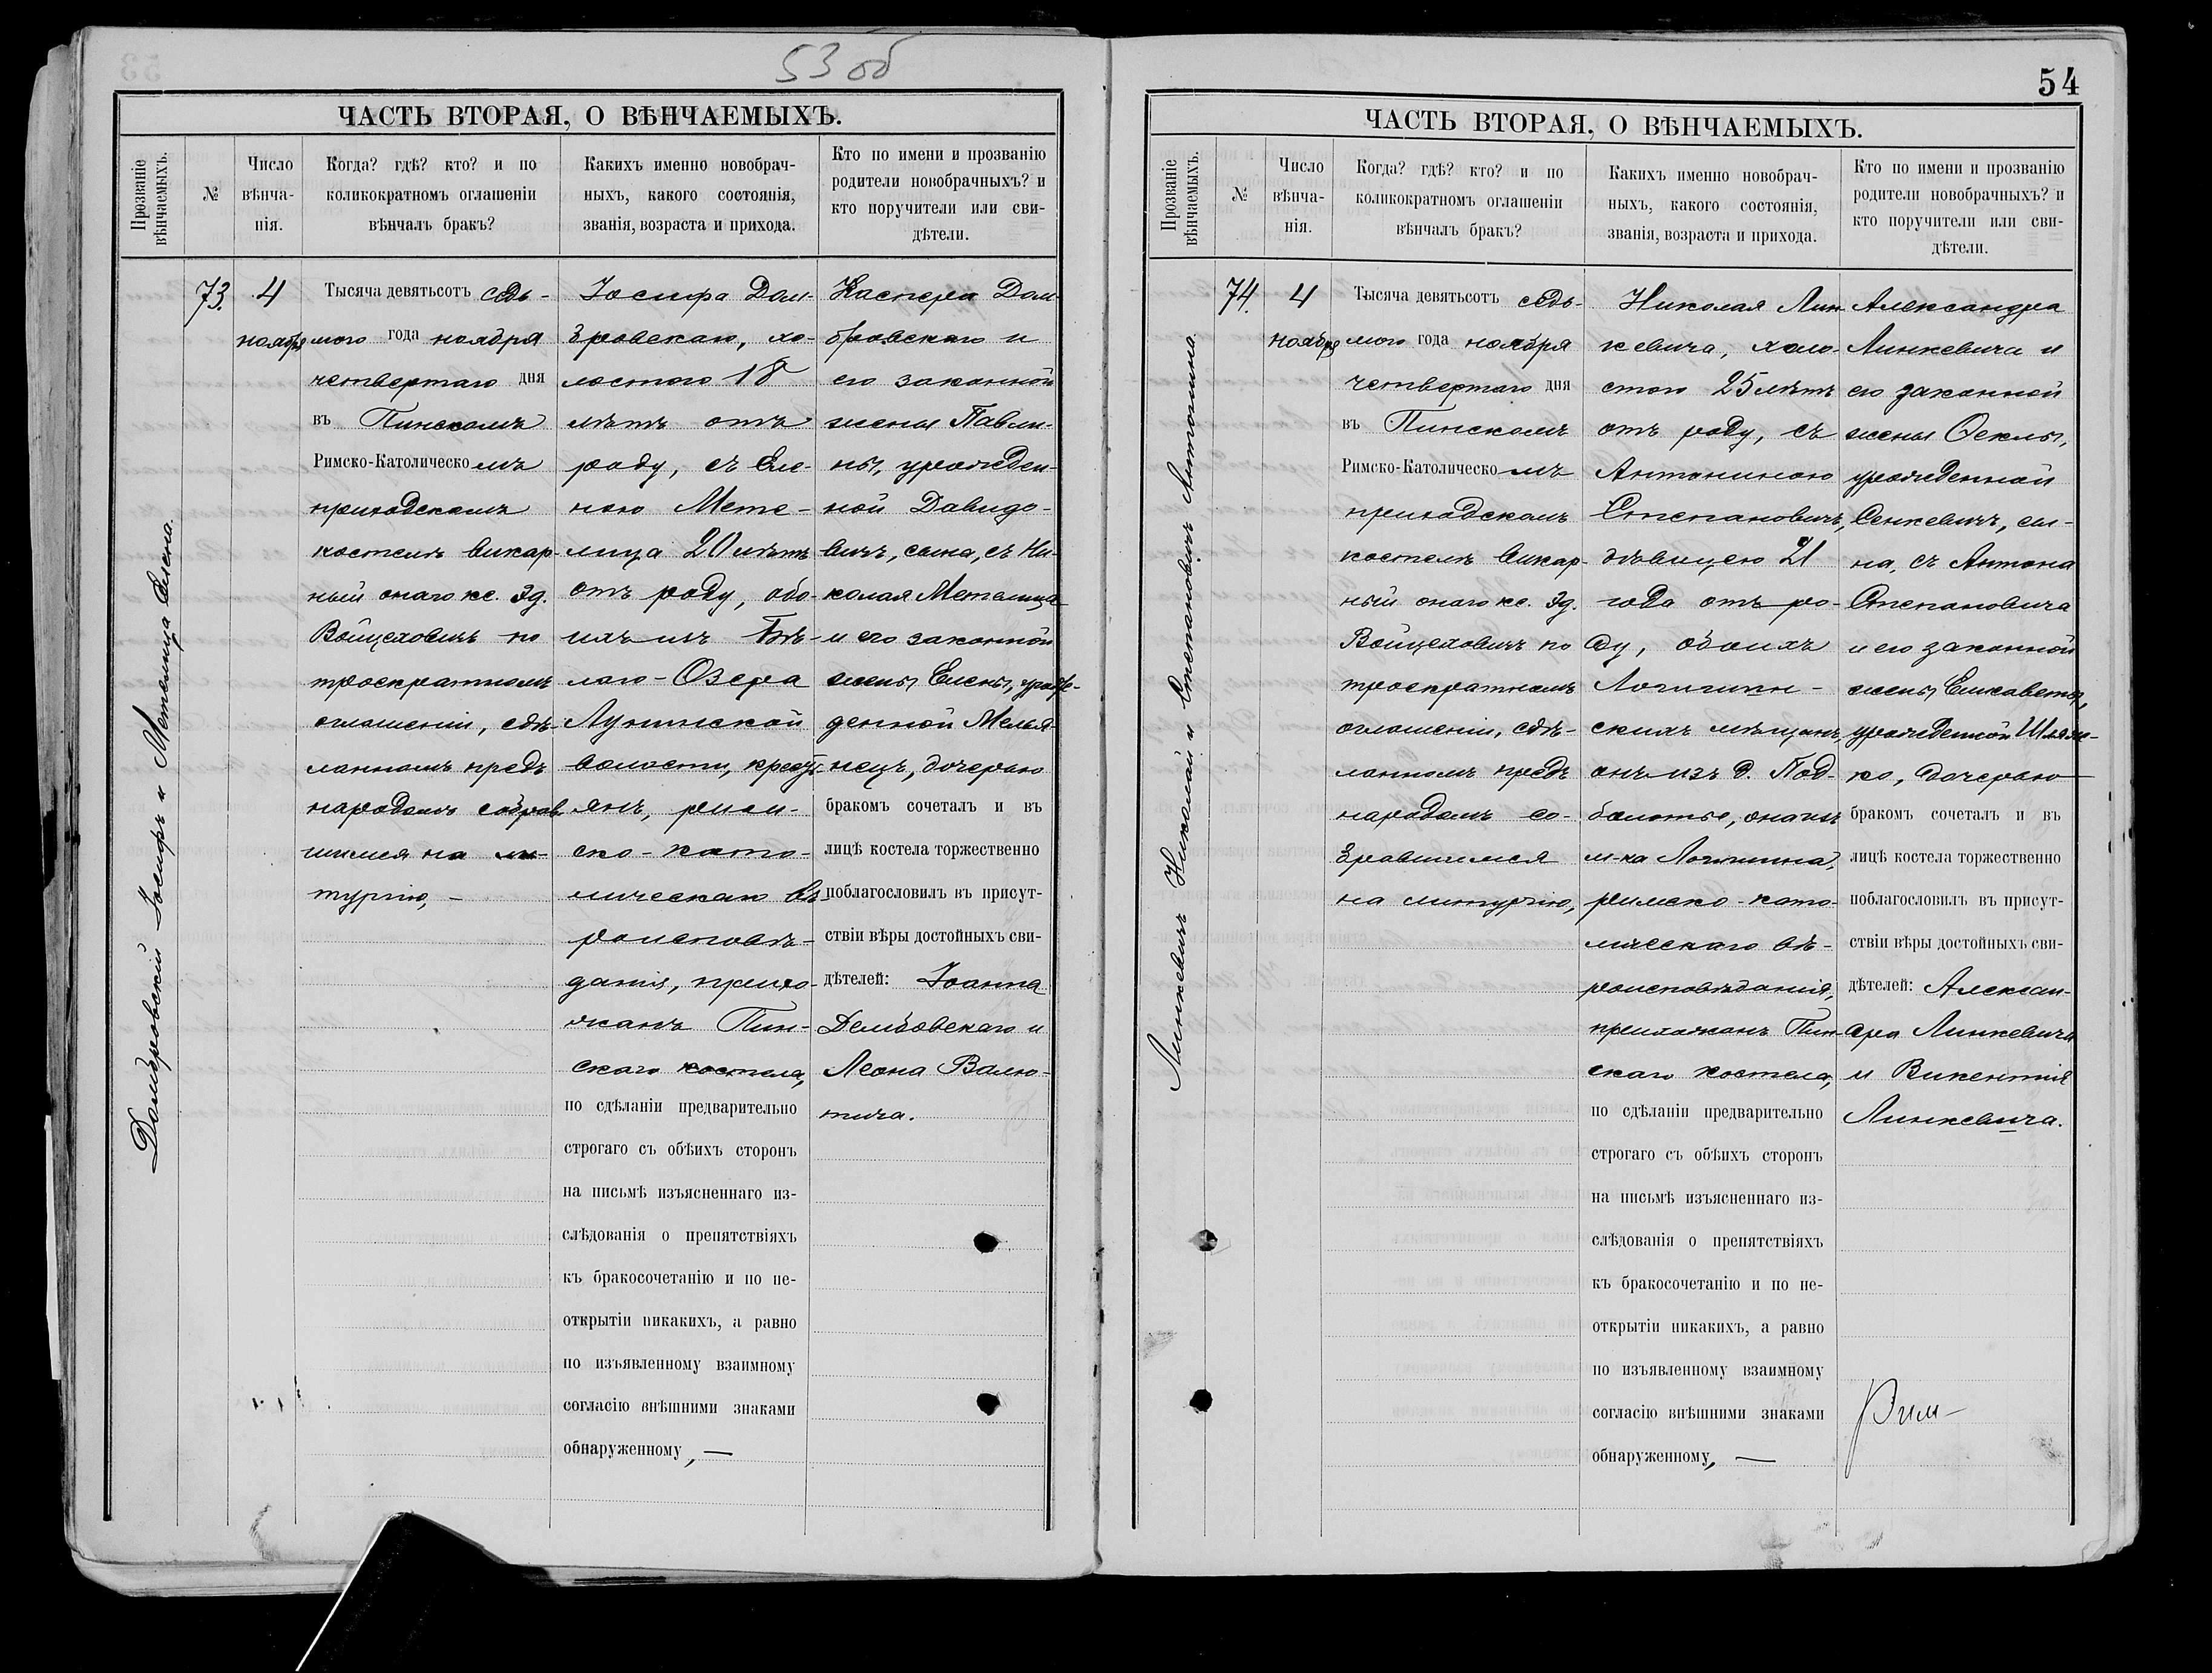 53 об
ЧАСТЬ ВТОРАЯ, О ВѢНЧАЕМЫХЪ.
Прозваніе
вѣнчаемыхъ.
№
Число
вѣнча-
нія.
Когда? гдѣ? кто? и по
коликократномъ оглашеніи
вѣнчалъ бракъ?
Какихъ именно новобрач-
ныхъ, какого состоянія,
званія, возраста и прихода.
Кто по имени и прозванію
родители новобрачныхъ? и
кто поручители или сви-
дѣтели.
Домбровскій Іосифъ и Метелица Елена.
73.
4
ноября
Тысяча девятьсотъ седь-
мого года ноября
четвертаго дня
въ Пинскомъ
Римско-Католическомъ
приходскомъ
костелѣ викар-
ный онаго кс. Эд.
Войцеховичъ по
троекратномъ
оглашеніи, сдѣ-
ланномъ предъ
народомъ собрав-
шимся на ли-
тургію, -
Іосифа Дом-
бровскаго, хо-
лостого 18
лѣтъ отъ
роду, съ Еле-
ною Мете-
лица 20 лѣтъ
отъ роду, обо-
ихъ изъ Бѣ-
лаго-Озера
Лунинской
волости, кресть-
янъ, рим-
ско-като-
лическаго вѣ-
роисповѣ-
данія, прихо-
жанъ Пин-
скаго костела,
по сдѣланіи предварительно
строгаго съ обѣихъ сторонъ
на письмѣ изъясненнаго из-
слѣдованія о препятствіяхъ
къ бракосочетанію и по не-
открытіи никакихъ, а равно
по изъявленному взаимному
согласію внѣшними знаками
обнаруженному, —
Каспера Дом-
бровскаго и
его законной
жены Павли-
ны, урожден-
ной Давидо-
вичъ, сына, съ Ни-
колая Метелица
и его законной
жены Елены, урож-
денной Мелья-
нецъ, дочерью
бракомъ сочеталъ и въ
лицѣ костела торжественно
поблагословилъ въ присут-
ствіи вѣры достойныхъ сви-
дѣтелей: Іоанна
Дембовскаго и
Леона Валю-
тича.
54
ЧАСТЬ ВТОРАЯ, О ВѢНЧАЕМЫХЪ.
Прозваніе
вѣнчаемыхъ.
№
Число
вѣнча-
нія.
Когда? гдѣ? кто? и по
коликократномъ оглашеніи
вѣнчалъ бракъ?
Какихъ именно новобрач-
ныхъ, какого состоянія,
званія, возраста и прихода.
Кто по имени и прозванію
родители новобрачныхъ? и
кто поручители или сви-
дѣтели.
Линкевичъ Николай и Степановичъ Антонина.
74.
4
ноября
Тысяча девятьсотъ седь-
мого года ноября
четвертаго дня
въ Пинскомъ
Римско-Католическомъ
приходскомъ
костелѣ викар-
ный онаго кс. Эд.
Войцеховичъ по
троекратномъ
оглашеніи, сдѣ-
ланномъ предъ
народомъ со-
бравшимся
на литургію,
Николая Лин-
кевича, холо-
стого 25 лѣтъ
отъ роду, съ
Антониною
Степановичъ,
дѣвицею 21
года отъ ро-
ду, обоихъ
Логишин-
скихъ мѣщанъ,
онъ изъ д. Под-
болотье, она изъ
м-ка Логишина,
римско-като-
лическаго вѣ-
роисповѣданія,
прихожанъ Пин-
скаго костела,
по сдѣланіи предварительно
строгаго съ обѣихъ сторонъ
на письмѣ изъясненнаго из-
слѣдованія о препятствіяхъ
къ бракосочетанію и по не-
открытіи никакихъ, а равно
по изъявленному взаимному
согласію внѣшними знаками
обнаруженному, —
Александра
Линкевича и
его законной
жены Ѳеклы,
урожденной
Сенкевичъ, сы-
на, съ Антона
Степановича
и его законной
жены Елисаветы,
урожденной Шляж-
ко, дочерью
бракомъ сочеталъ и въ
лицѣ костела торжественно
поблагословилъ въ присут-
ствіи вѣры достойныхъ сви-
дѣтелей: Алексан-
дра Линкевича
и Викентія
Линкевича.
Рим-